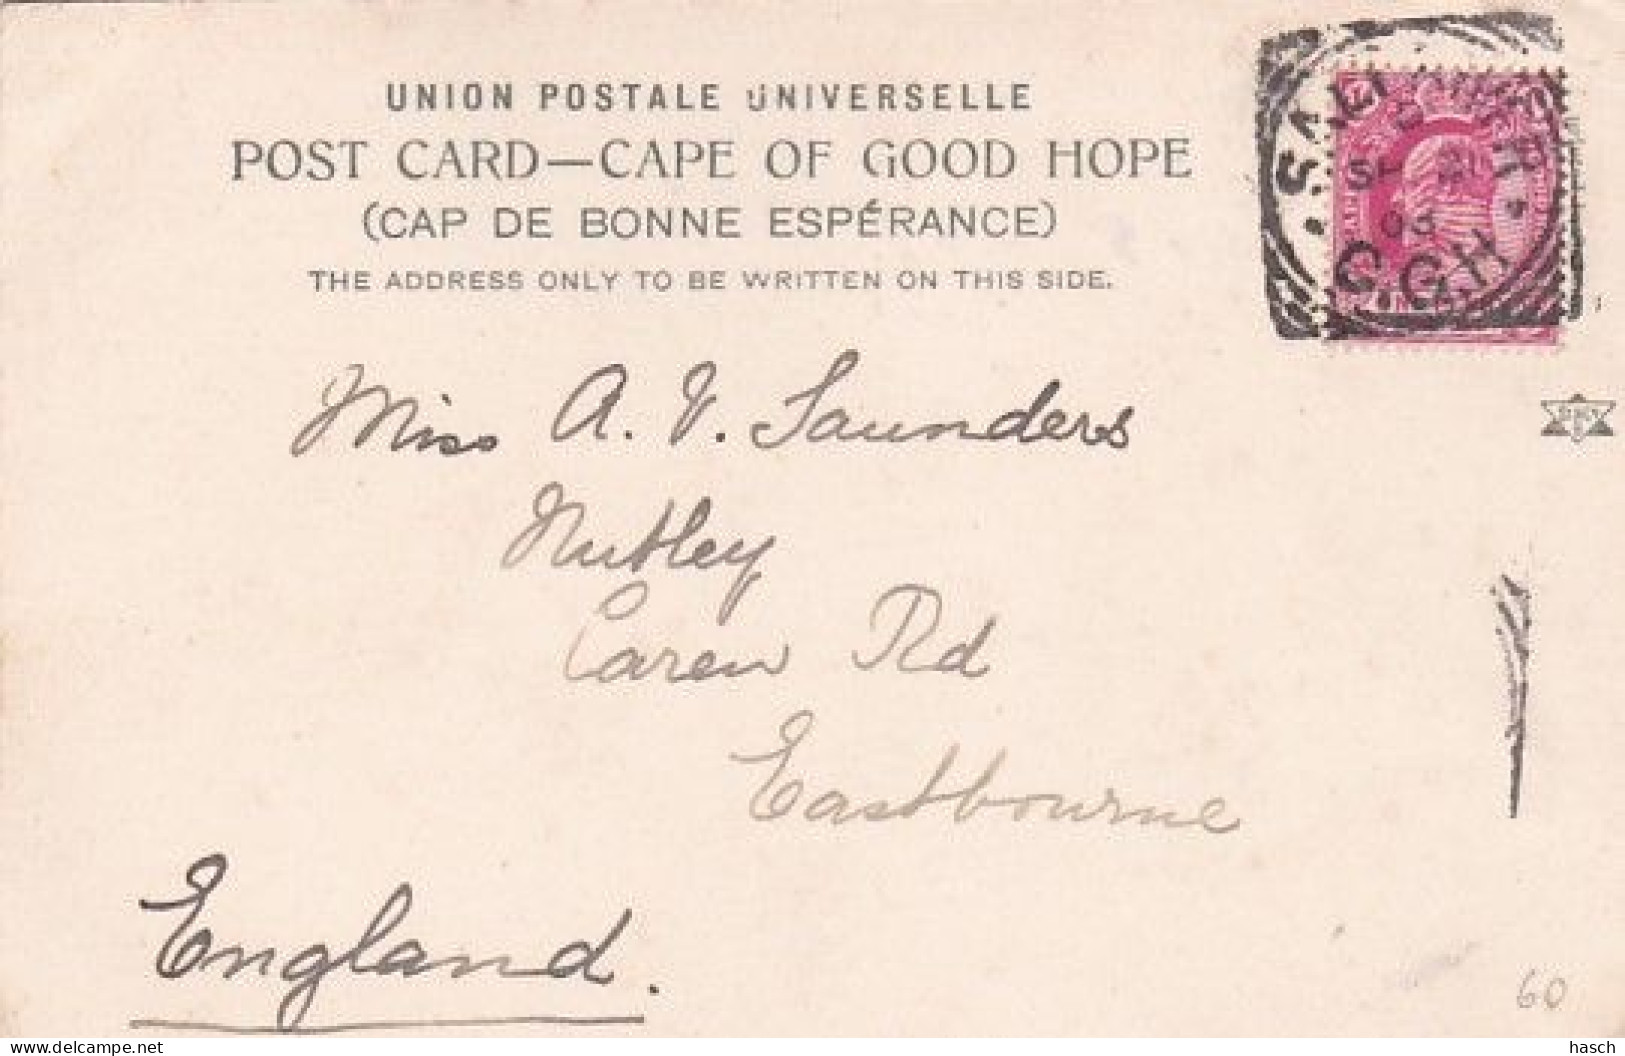 UNION POSTALE UNIVERSELLE
POST CARD—CAPE OF GOOD HOPE
(CAP DE BONNE ESPÉRANCE)
THE ADDRESS ONLY TO BE WRITTEN ON THIS SIDE.
SALT RIVER
03
C.G.H
Miss A. V. Saunders
Nutley
Carew Rd
Eastbourne
England.
60
hasch